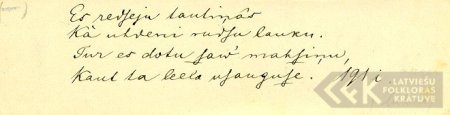 Es redseju tautiņās
Kā ūdeni rudsu lauku.
Tur es dotu saw' mahsiņu,
Kaut ta leela usauguse.
191,
LATVIEŠU
FOLKLORAS
KRĀTUVE